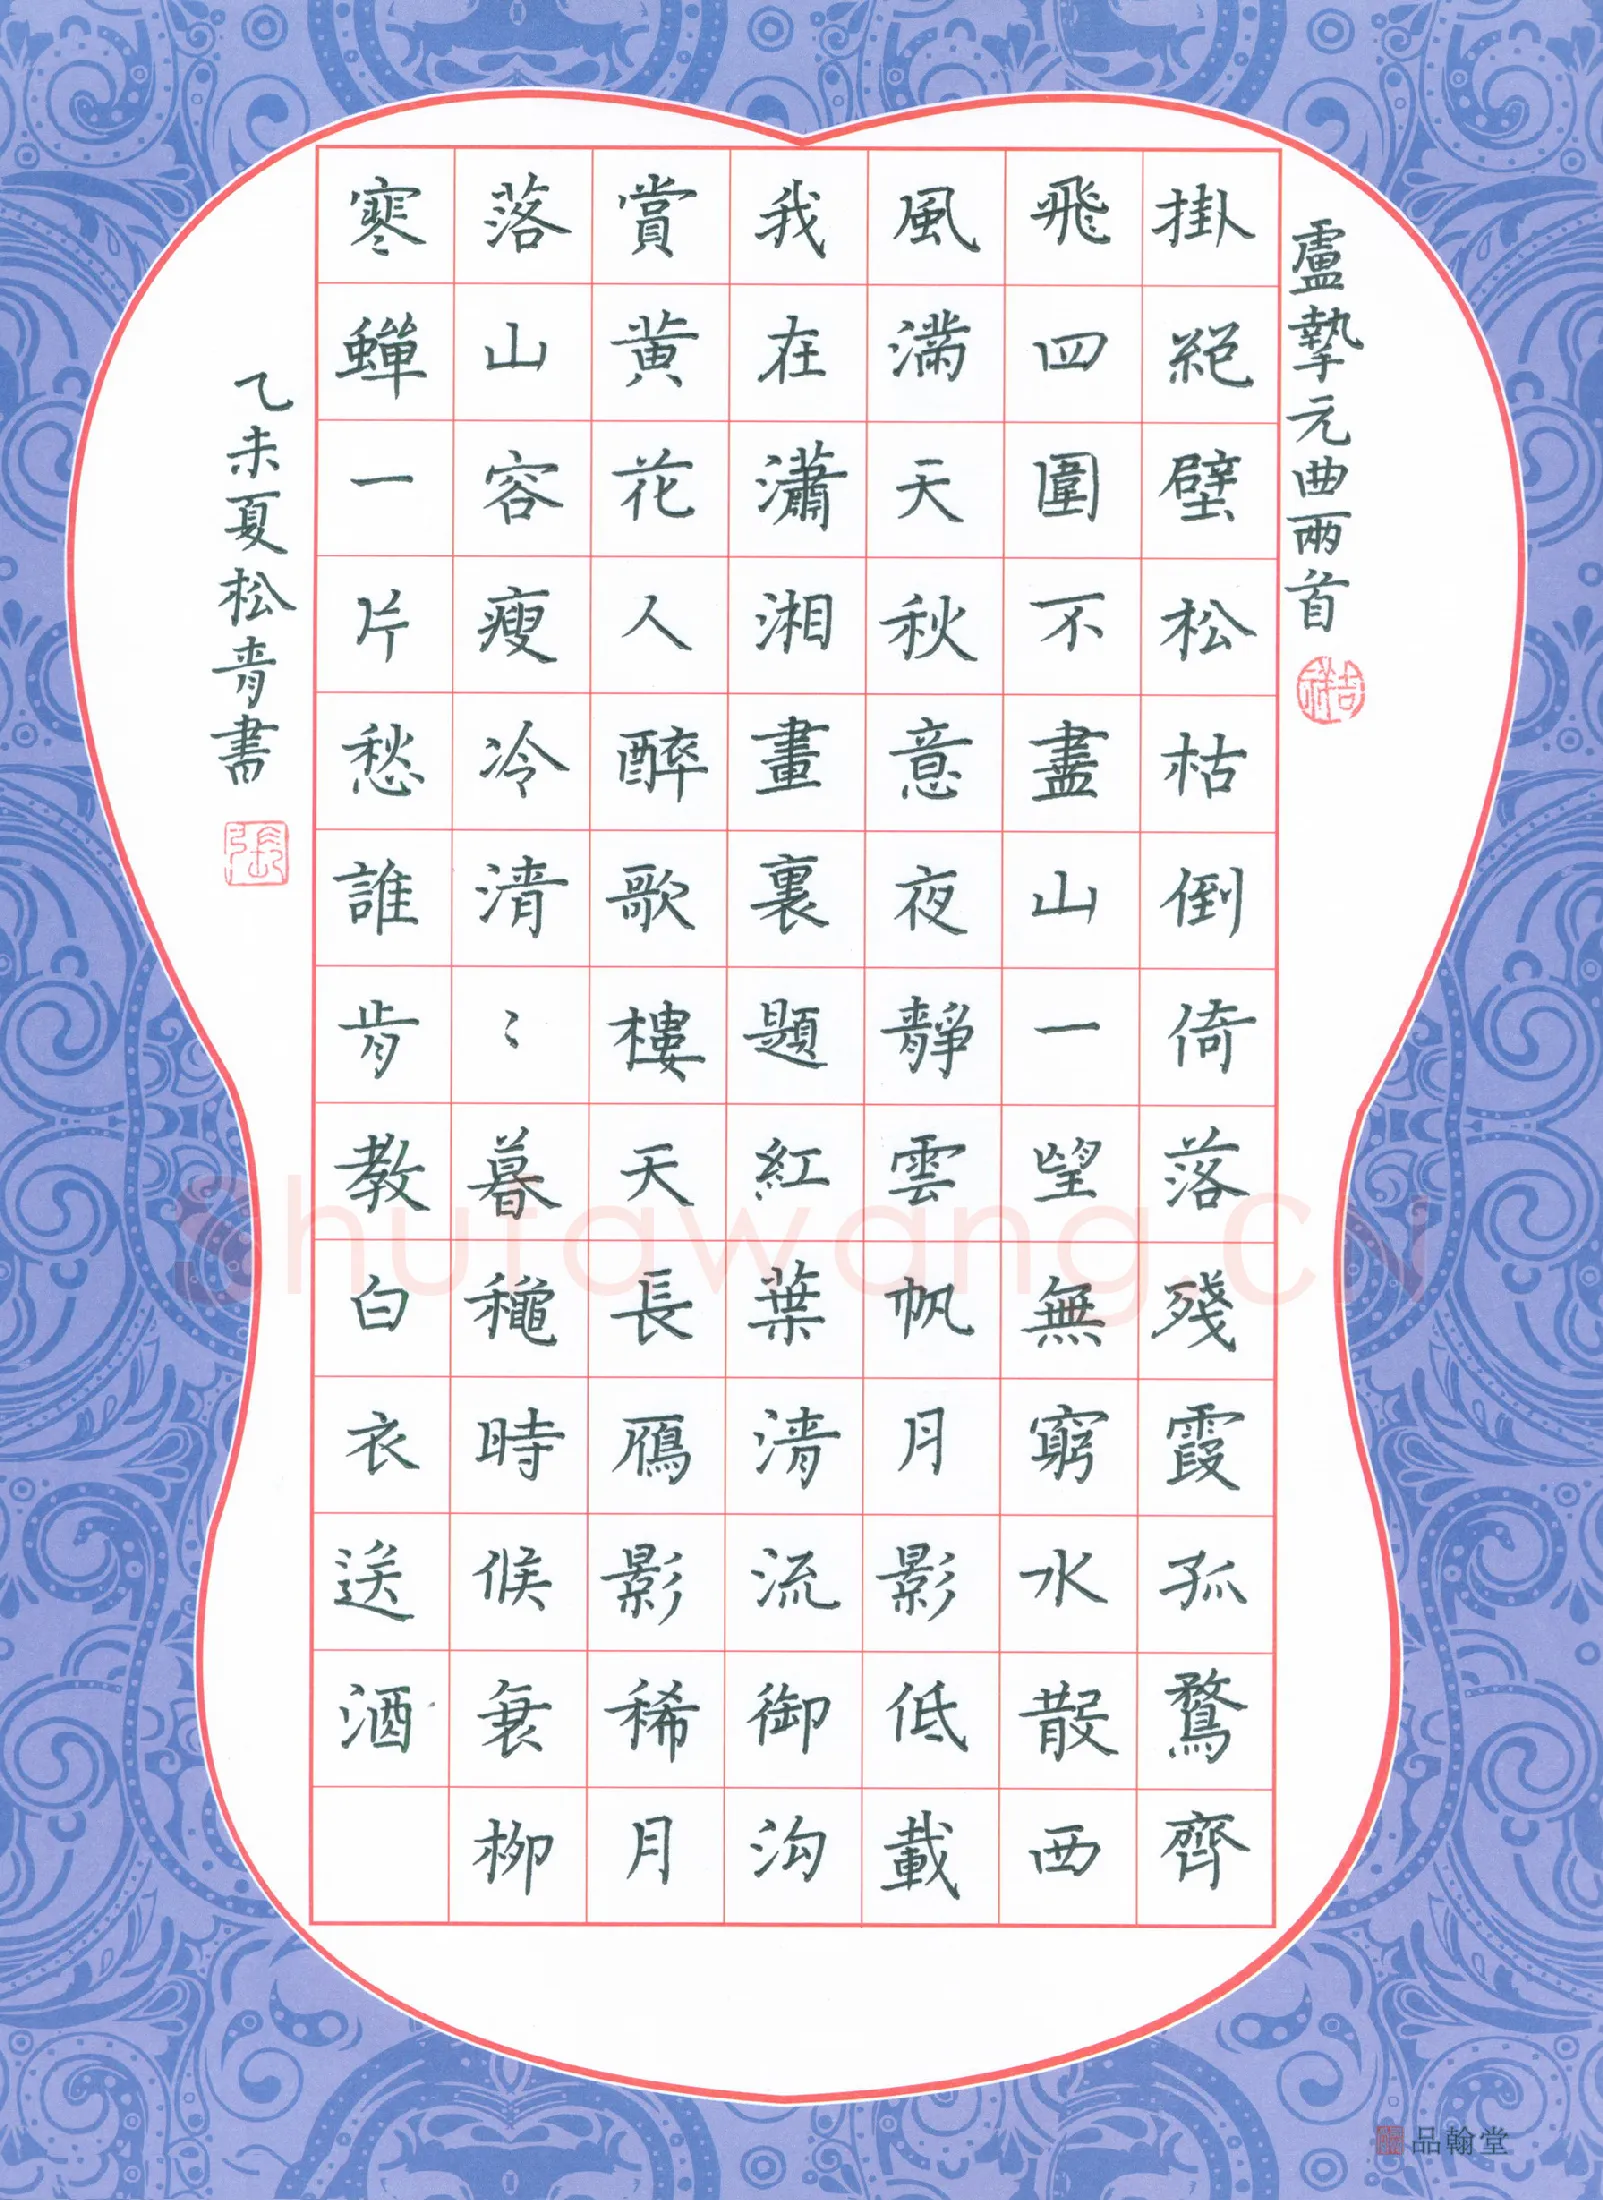 盧摯元曲兩首
吉祥
掛絕壁松枯倒倚落殘霞孤鶩齊
飛四圍不盡山一望無窮水散西
風滿天秋意夜靜雲帆月影低載
我在瀟湘畫裏題紅葉清流御溝
賞黃花人醉歌樓天長鴈影稀月
落山容瘦冷清〻暮龝時候衰柳
寒蟬一片愁誰肯教白衣送酒
乙未夏松青書
張
Shufawang.CN
品翰堂